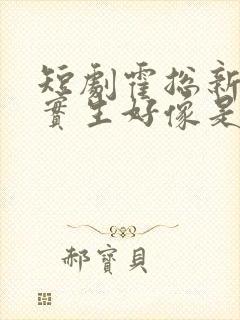 短劇霍總新
實生好像是
郝寶貝